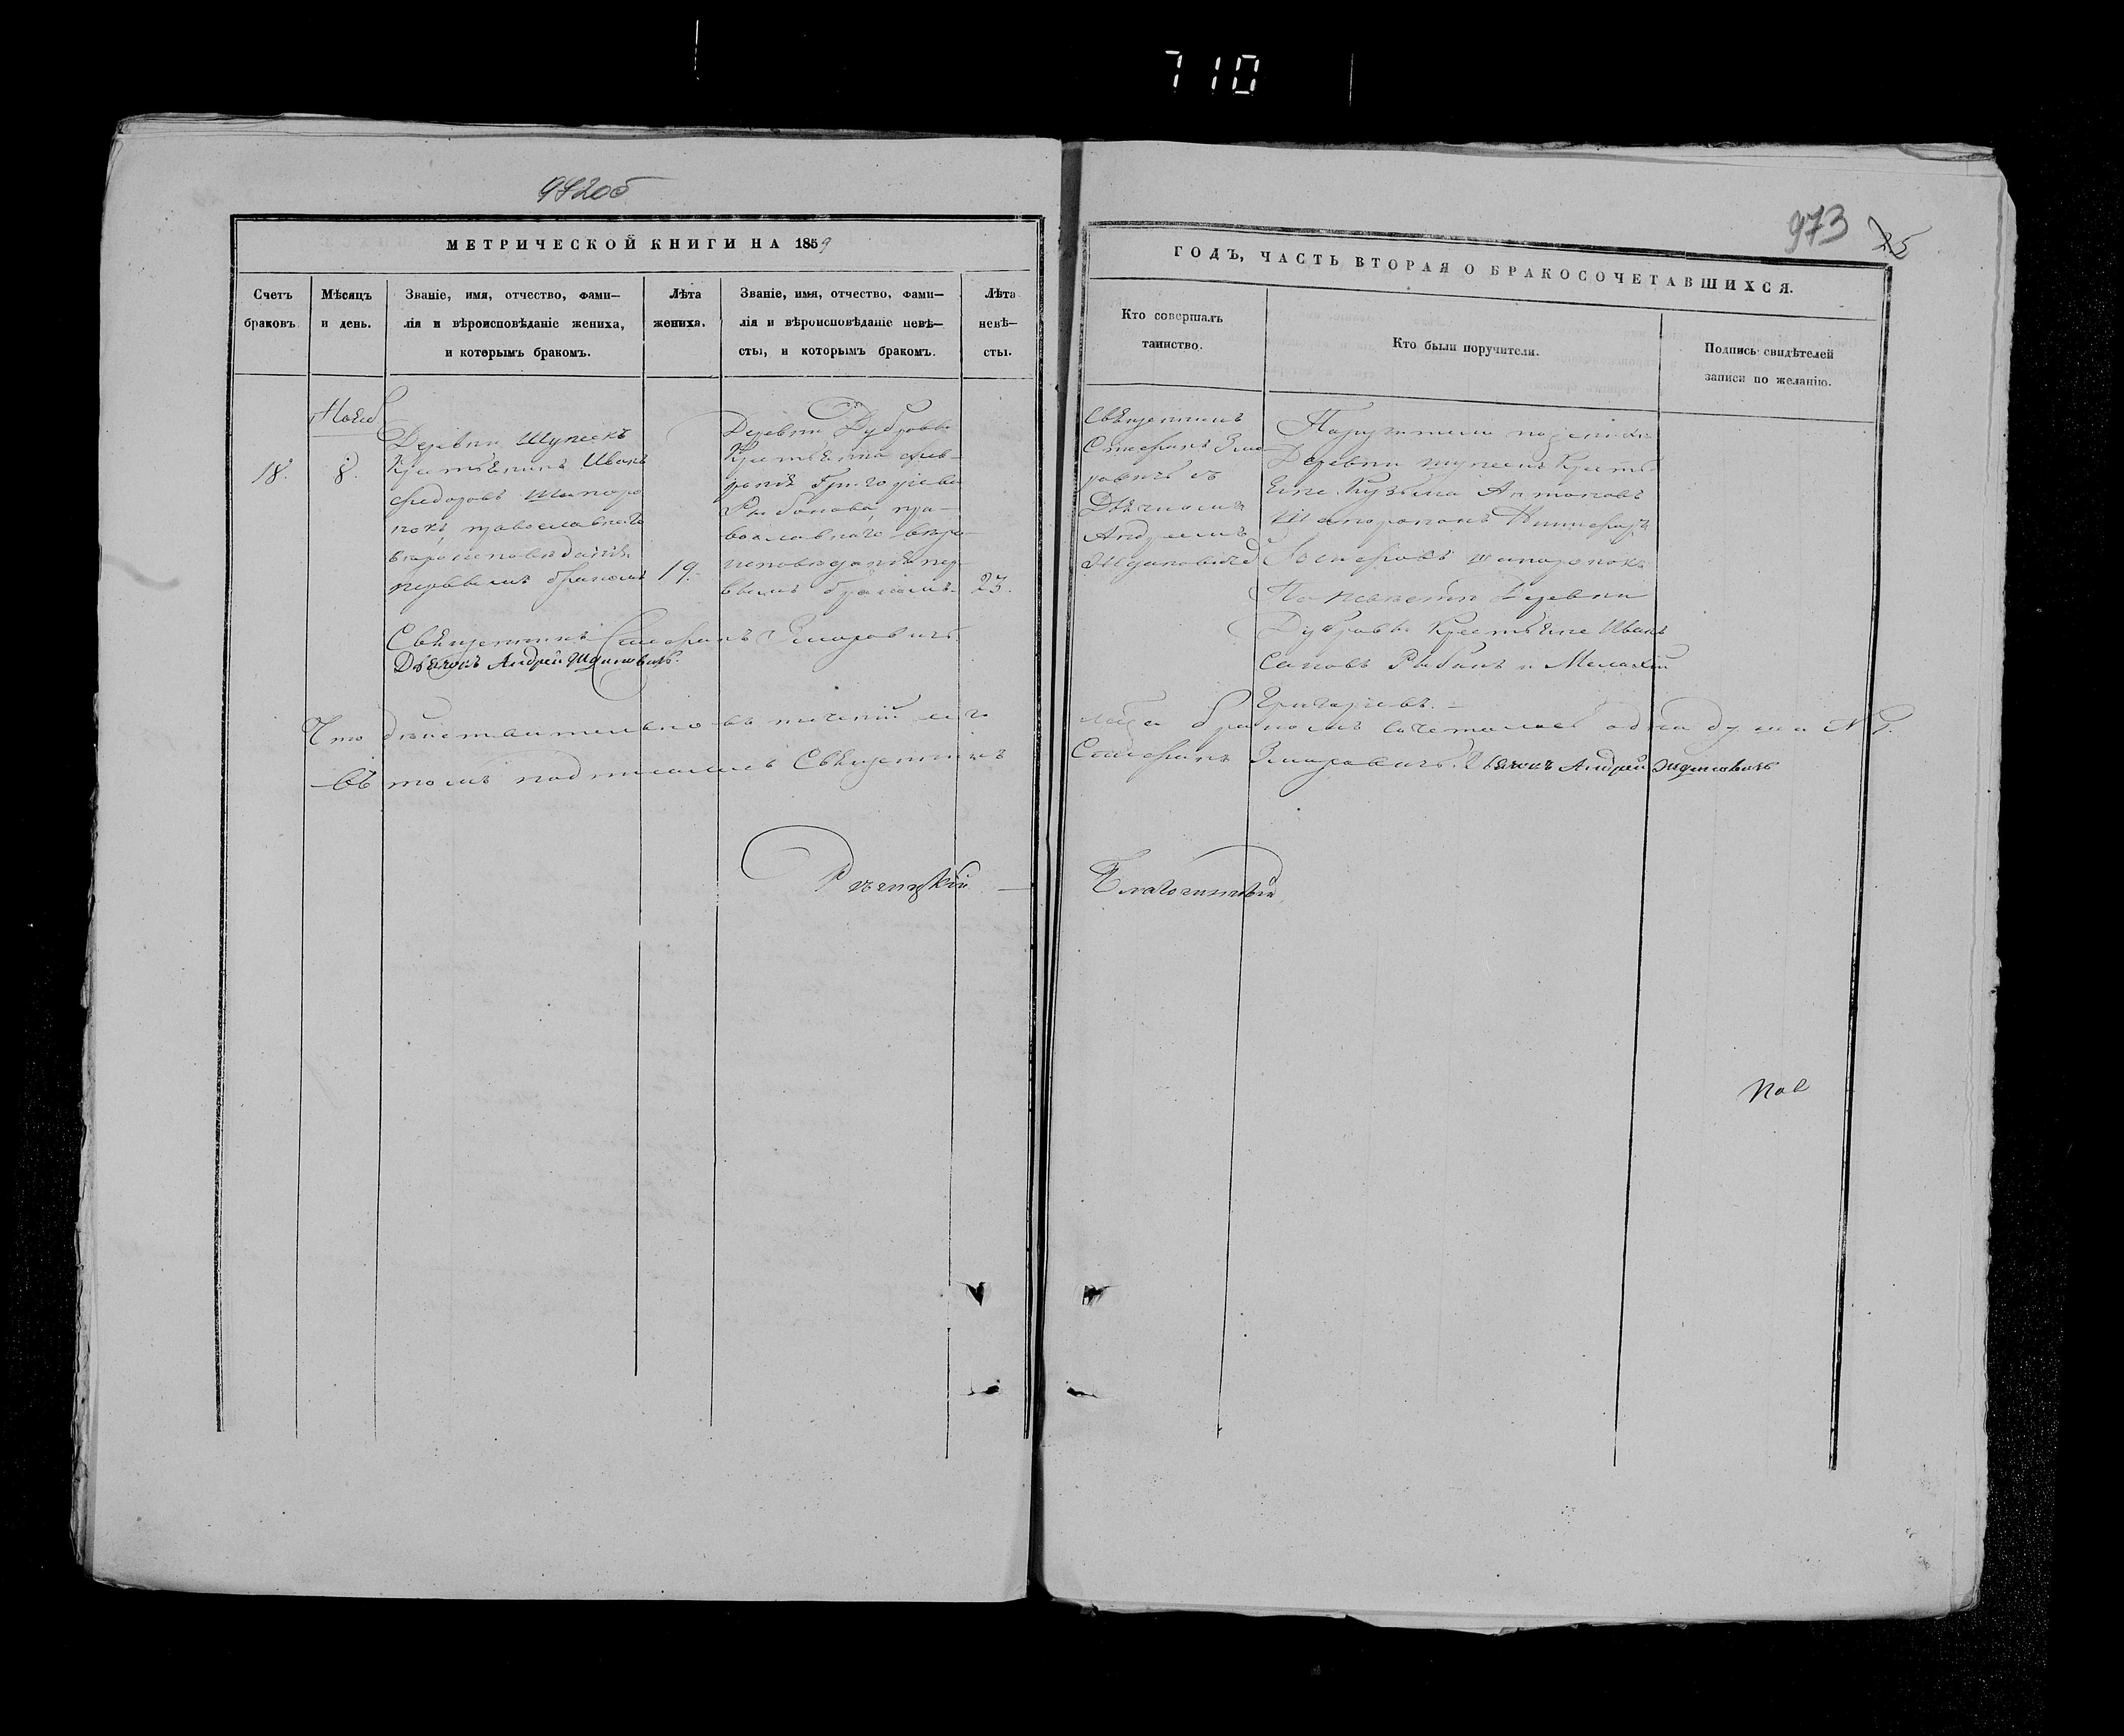 710
972об
МЕТРИЧЕСКОЙ КНИГИ НА 1859
Счетъ браковъ.
Мѣсяцъ и день.
Званіе, имя, отчество, фами—
лія и вѣроисповѣданіе жениха,
и которымъ бракомъ.
Лѣта жениха.
Званіе, имя, отчество, фами—
лія и вѣроисповѣданіе невѣ—
сты, и которымъ бракомъ.
Лѣта невѣ—
сты.
Нояб
18.
8.
Деревни Шупеекъ
Крестьянинъ Иванъ
Федоровъ Шапоро
нокъ, православнаго
вѣроисповѣданія
первымъ бракомъ
19.
Деревни Дубровы
Крестьянка
Григорьева
Рыбакова, пра—
вославнаго вѣро—
исповѣданія пер—
вымъ бракомъ.
23.
Священникъ Стефанъ
Дьячокъ Андрей Ждановичъ.
Что дѣйствительно въ теченіи сего
въ томъ подписались Священникъ
Рѣчицкій —
973 25
ГОДЪ, ЧАСТЬ ВТОРАЯ О БРАКОСОЧЕТАВШИХСЯ.
Кто совершалъ
таинство.
Кто были поручители.
Подпись свидѣтелей
записи по желанію.
Священникъ
Стефанъ
съ
Дьячкомъ
Андреемъ
Ждановичемъ
Поручители по женихѣ
Деревни Шупеекъ Кресть
яне Кузьма Антоновъ
Шапоронокъ Никифоръ
Шапоронокъ
По невѣстѣ Деревни
Дубровы Крестьяне Иванъ
Рыбакъ и Малахій
Григорьевъ. —
бракомъ сочеталась одна душа № 1.
Стефанъ Дьячокъ Андрей Ждановичъ
Благочинный